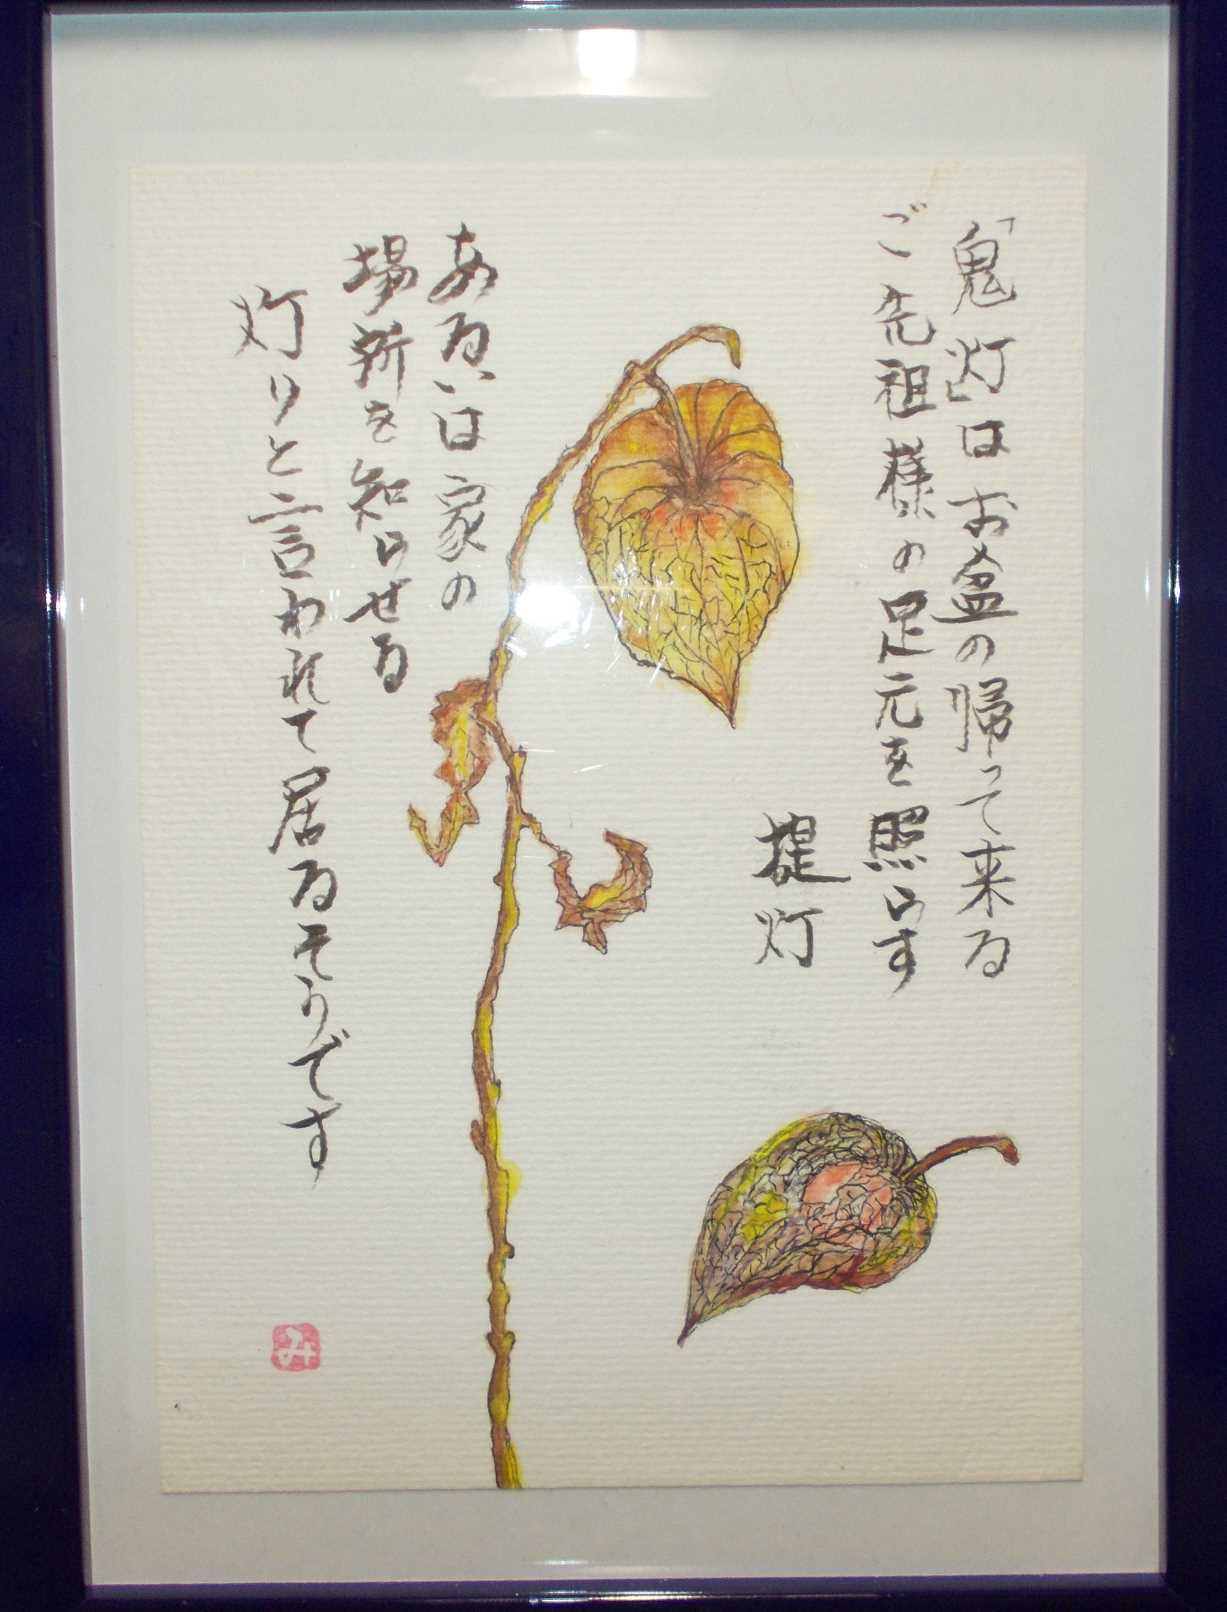 「鬼灯」はお盆の帰って来る
ご先祖様の足元を照らす
提灯
あるいは家の
場所を知らせる
灯りと言われて居るそうです
み